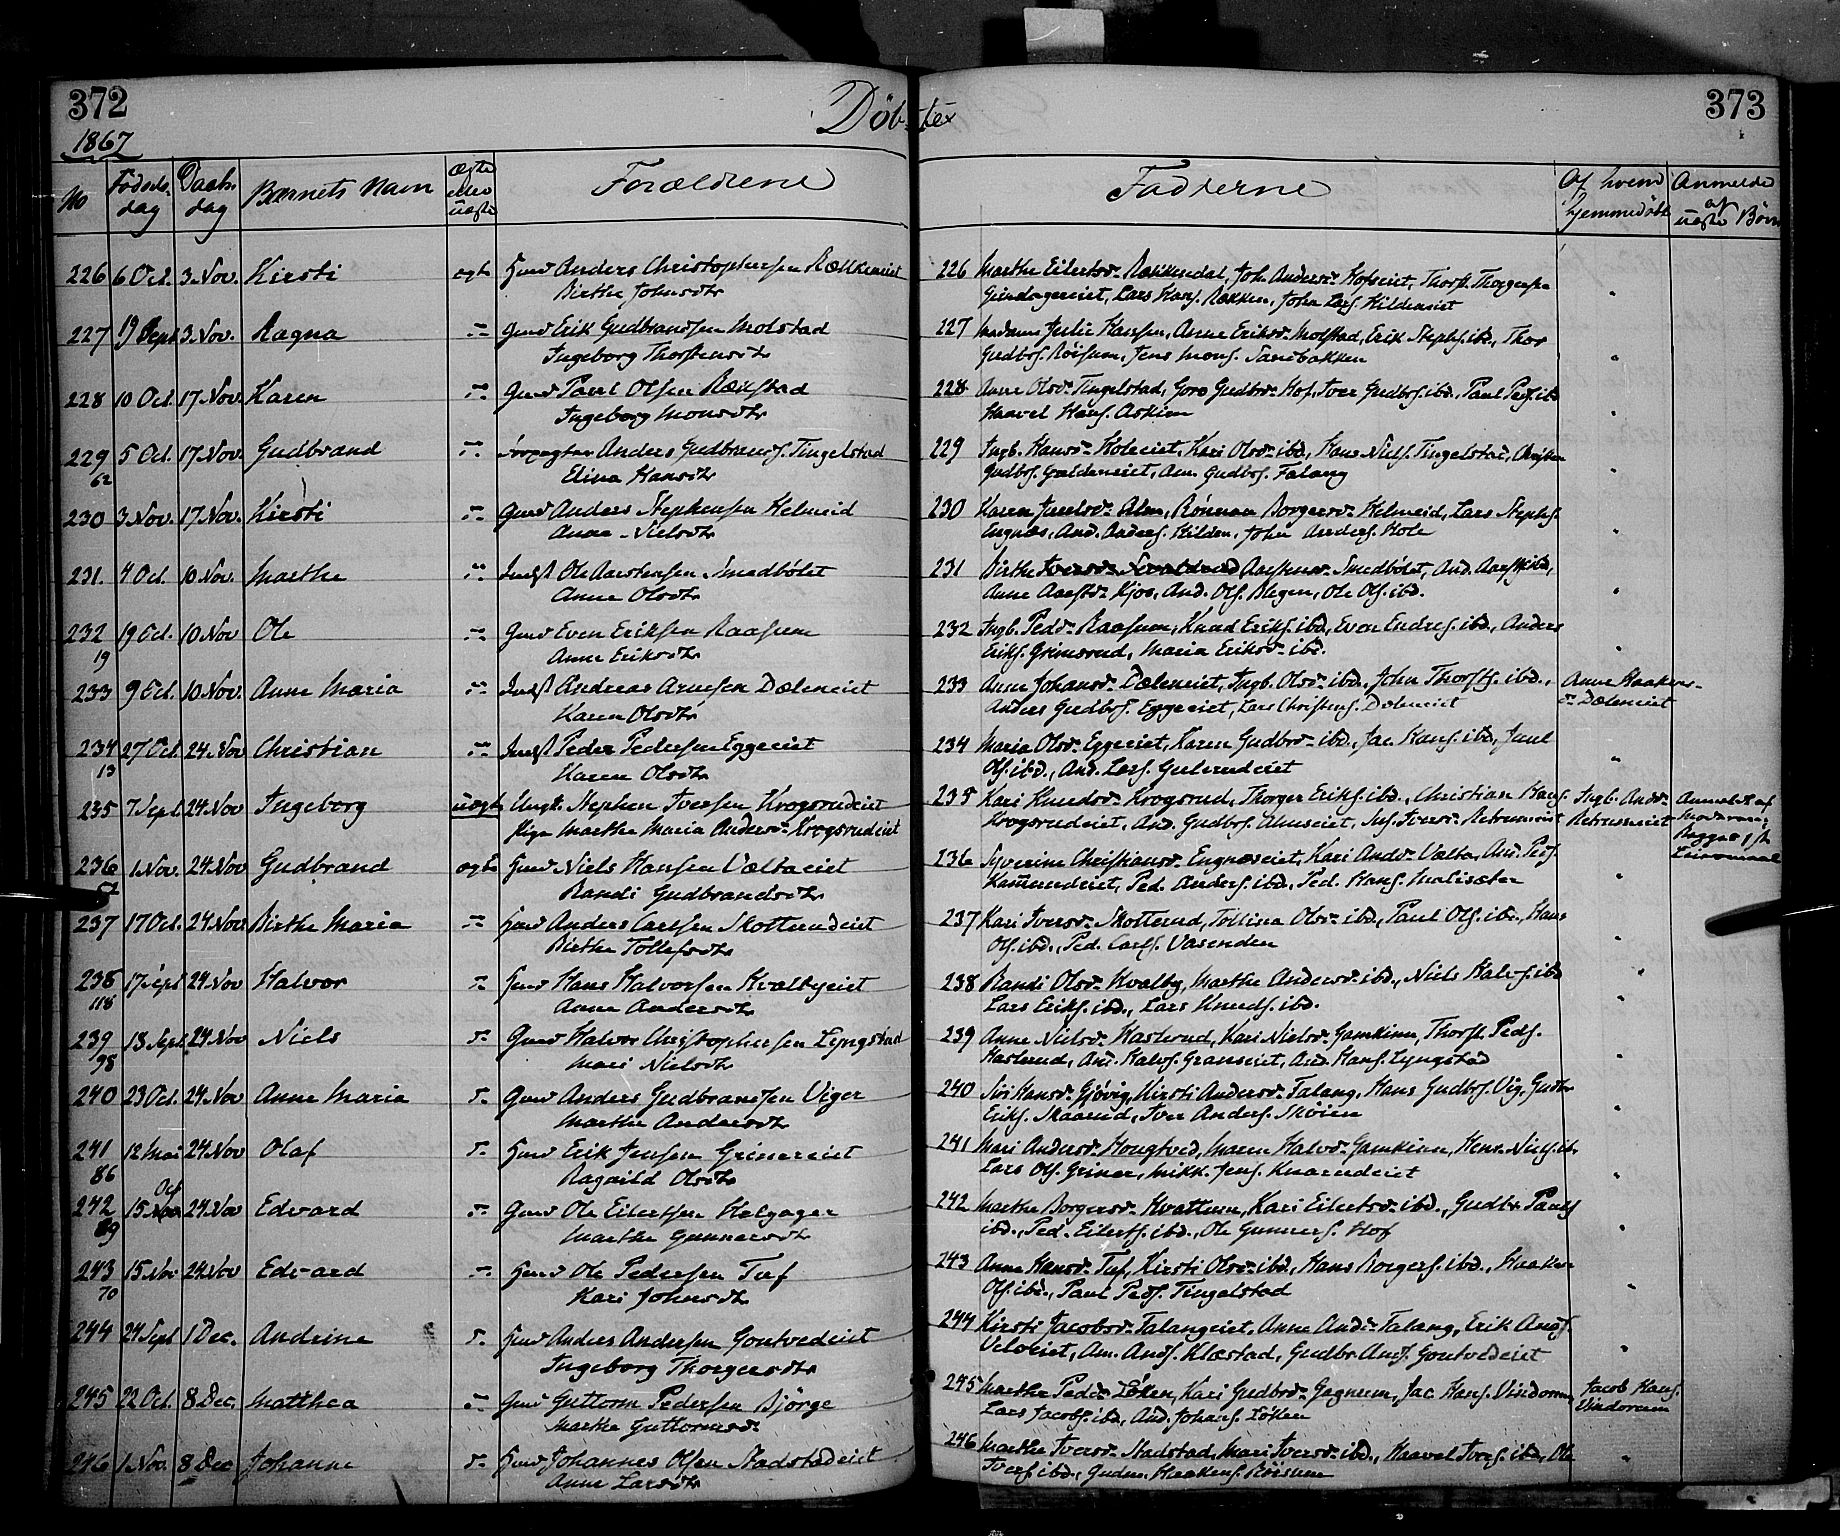 372
Døbte
373
1867
No
Fødsels-
dag
Daabs-
dag
Barnets Navn
Ægte
eller
uægte
Forældrene
Fadderne
Af hvem
hjemmedøbt
Anmeldt
af
uægte Børn
226 6 Oct. 3 Nov. Kirsti ægte Huusm. Anders Christophersen
Birthe Johnsdtr
226 Marthe Eilertsd. Joh. Andersd. Hofseiet, Thorst. Thorgersen
Lars Hans. Røkken, John Lars. Kildeneiet
227 19 Sept 3 Nov. Ragna Gmd Erik Gudbrandsen Molstad
Ingeborg Thorstensdtr
227 Madame Julie Hansen, Anne Eriksd. Molstad, Erik Stephs. ibd., Thor
Gudbrs. Røisum, Jens Mons. Sandbakken
228 10 Oct. 17 Nov. Karen Gmd Paul Olsen Rækstad
Ingeborg Monsdtr
228 Anne Olsd. Tingelstad, Goro Gudbrd. Hof, Iver Gudbrs. ibd., Paul Peds. ibd
Haavel Hans. Askim
229 5 Oct. 17 Nov. Gudbrand Forpagter Anders Gudbrands. Tingelstad
62
Elina Hansdtr
229 Ingb. Hansd. Holeeiet, Kari Olsd. ibd, Hans Niels. Tingelstad,
Gudbrs. And. Gudbrs. Falang
230 3 Nov. 17 Nov. Kirsti Gmd Anders Stephensen Helmeid
Anne Nielsdtr
230 Karen Juelsd. Alm, Rønnau Borgersd. Helmeid, Lars Stephs.
Engnæs, And. Anders. Hilden, John Anders. Hole
231. 4 Oct. 10 Nov. Marthe Indst Ole Aarstensen Smedbølet
Anne Olsdtr
231 Birthe Smedbølet, And. ibd,
Anne Kjos, And. Ols. Bagen, Ole Ols. ibd.
232 19 Oct. 10 Nov Ole Gmd Even Eriksen Raassum
19
Anne Eriksdtr
232 Ingb. Pedd. Raassum, Knud Eriks. ibd, Even Endres. ibd., Anders
Eriks. Grimsrud, Maria Eriksd. ibd.
233 9 Oct. 10 Nov. Anne Maria Indst Andreas Arnesen Dæleneiet
Karen Olsdtr
233 Anne Johansd. Dæleneiet, Ingb. Olsd. ibd., John Thorsts. ibd.,
Anders Gudbrs. Eggeeiet, Lars Christens. Dæleneiet
Anne Haakens-
d. Dæleneiet
234 27 Oct. 24 Nov Christian Indst Peder Pedersen Eggeeiet
13
Karen Olsdtr
234 Maria Olsd. Eggeeiet, Karen Gudbrd. ibd., Jac. Hans. ibd, Juul
Ols. ibd., And. Lars. Gulerudeiet
235 7 Sept 24 Nov Ingeborg uægte Ungk. Stephen Iversen Krogsrudeiet
Pige Marthe Maria Andersd. Krogsrudeiet
235 Kari Knudsd. Krogsrud, Thorger Eriks. ibd., Christian Hans.
Krogsrudeiet, And. Gudbrs. Almseiet,
Ingb. Andd.
Anmeldt af
236 1 Nov. 24 Nov Gudbrand ægte Huusm. Niels Hansen Vælbaeiet
52
Randi Gudbrandsdtr
236 Syverine Christiansd. Engnæseiet, Kari Andd. Vælba, And. Peds.
Kammerudeiet, Ped. Anders. ibd., Ped. Hans. Malisæter
237 17 Oct. 24 Nov Birthe Maria Huusm. Anders Carlsen Skotterudeiet
Birthe Tollefsdtr
237 Kari Iversd. Skotterud, Tolline Olsd. ibd, Paul Ols. ibd., Hans
Ols. ibd., Ped. Carls. Vasenden
238 17 Sept 24 Nov Halvor Huusm. Hans Halvorsen Kvalbyeiet
118
Anne Andersdtr
238 Randi Olsd. Kvalby, Marthe Andersd. ibd., Niels Halvs. ibd
Lars Eriks. ibd., Lars Knuds. ibd.
239 13 Sept. 24 Nov Niels Gmd Halvor Christophersen Lyngstad
98
Mari Nielsdtr
239 Anne Nielsd. Haslerud, Kari Nielsd. Gamkinn, Thorst. Peds.
Haslerud, And. Halvs. Granseiet, And. Hans. Lyngstad
240 23 Oct. 24 Nov Anne Maria Gmd Anders Gudbrandsen Viger
Marthe Andersdtr
240 Siri Hansd. Gjøvig, Kirsti Andersd. Falang, Hans Gudbrs. Vig, Gudbr
Eriks. Skaarud, Iver Anders. Skøien
241 12 Mai 24 Nov Olaf Huusm. Erik Jensen Grinereiet
86
Ragnild Olsdtr
241 Mari Andersd. Hougtved, Maren Halvd. Gamkinn, Hans Niels. ib.
Lars Ols. Griner, Mikk. Jens. Knarudeiet
Oct
242 15 Nov 24 Nov Edvard Gmd Ole Eilertsen Helgager
89
Marthe Gunnersdtr
242 Marthe Borgersd. Kvattum, Kari Eilertsd. ibd., Gudbr. Pauls
ibd., Ped. Eilerts. ibd., Ole Gunners. Hof
243 15 Nov 24 Nov Edvard Huusm. Ole Pedersen Tuf
70
Kari Johnsdtr
243 Anne Hansd. Tuf, Kirsti Olsd. ibd., Hans Borgers. ibd., Haaken
Ols. ibd., Paul Peds. Tingelstad
244 24 Sept 1 Dec. Andrine Huusm. Anders Andersen Gontvedeiet
Ingeborg Thorgersdtr
244 Kirsti Jacobsd. Falangeiet, Anne Andd. Falang, Erik Ands.
Veloeiet, Am. Ands. Klæstad, Gudbr. Ands. Gontvedeiet
245 22 Oct. 8 Dec. Matthea Gmd Guttorm Pedersen Bjørge
Marthe Guttormsd.
245 Marthe Pedd. Løken, Kari Gudbrd. Gagnum, Jac. Hans. Vindorum
Lars Jacobs. ibd, And. Johans. Løken
Jacob Hans.
Vindorum
246 1 Nov. 8 Dec Johanne Huusm. Johannes Olsen Stadstadeiet
Anne Larsdtr
246 Marthe Iversd. Stadstad, Mari Iversd. ibd., Haavel Ivers. ibd, Ole
Ivers. ibd., Gudm. Haakens. Røissum